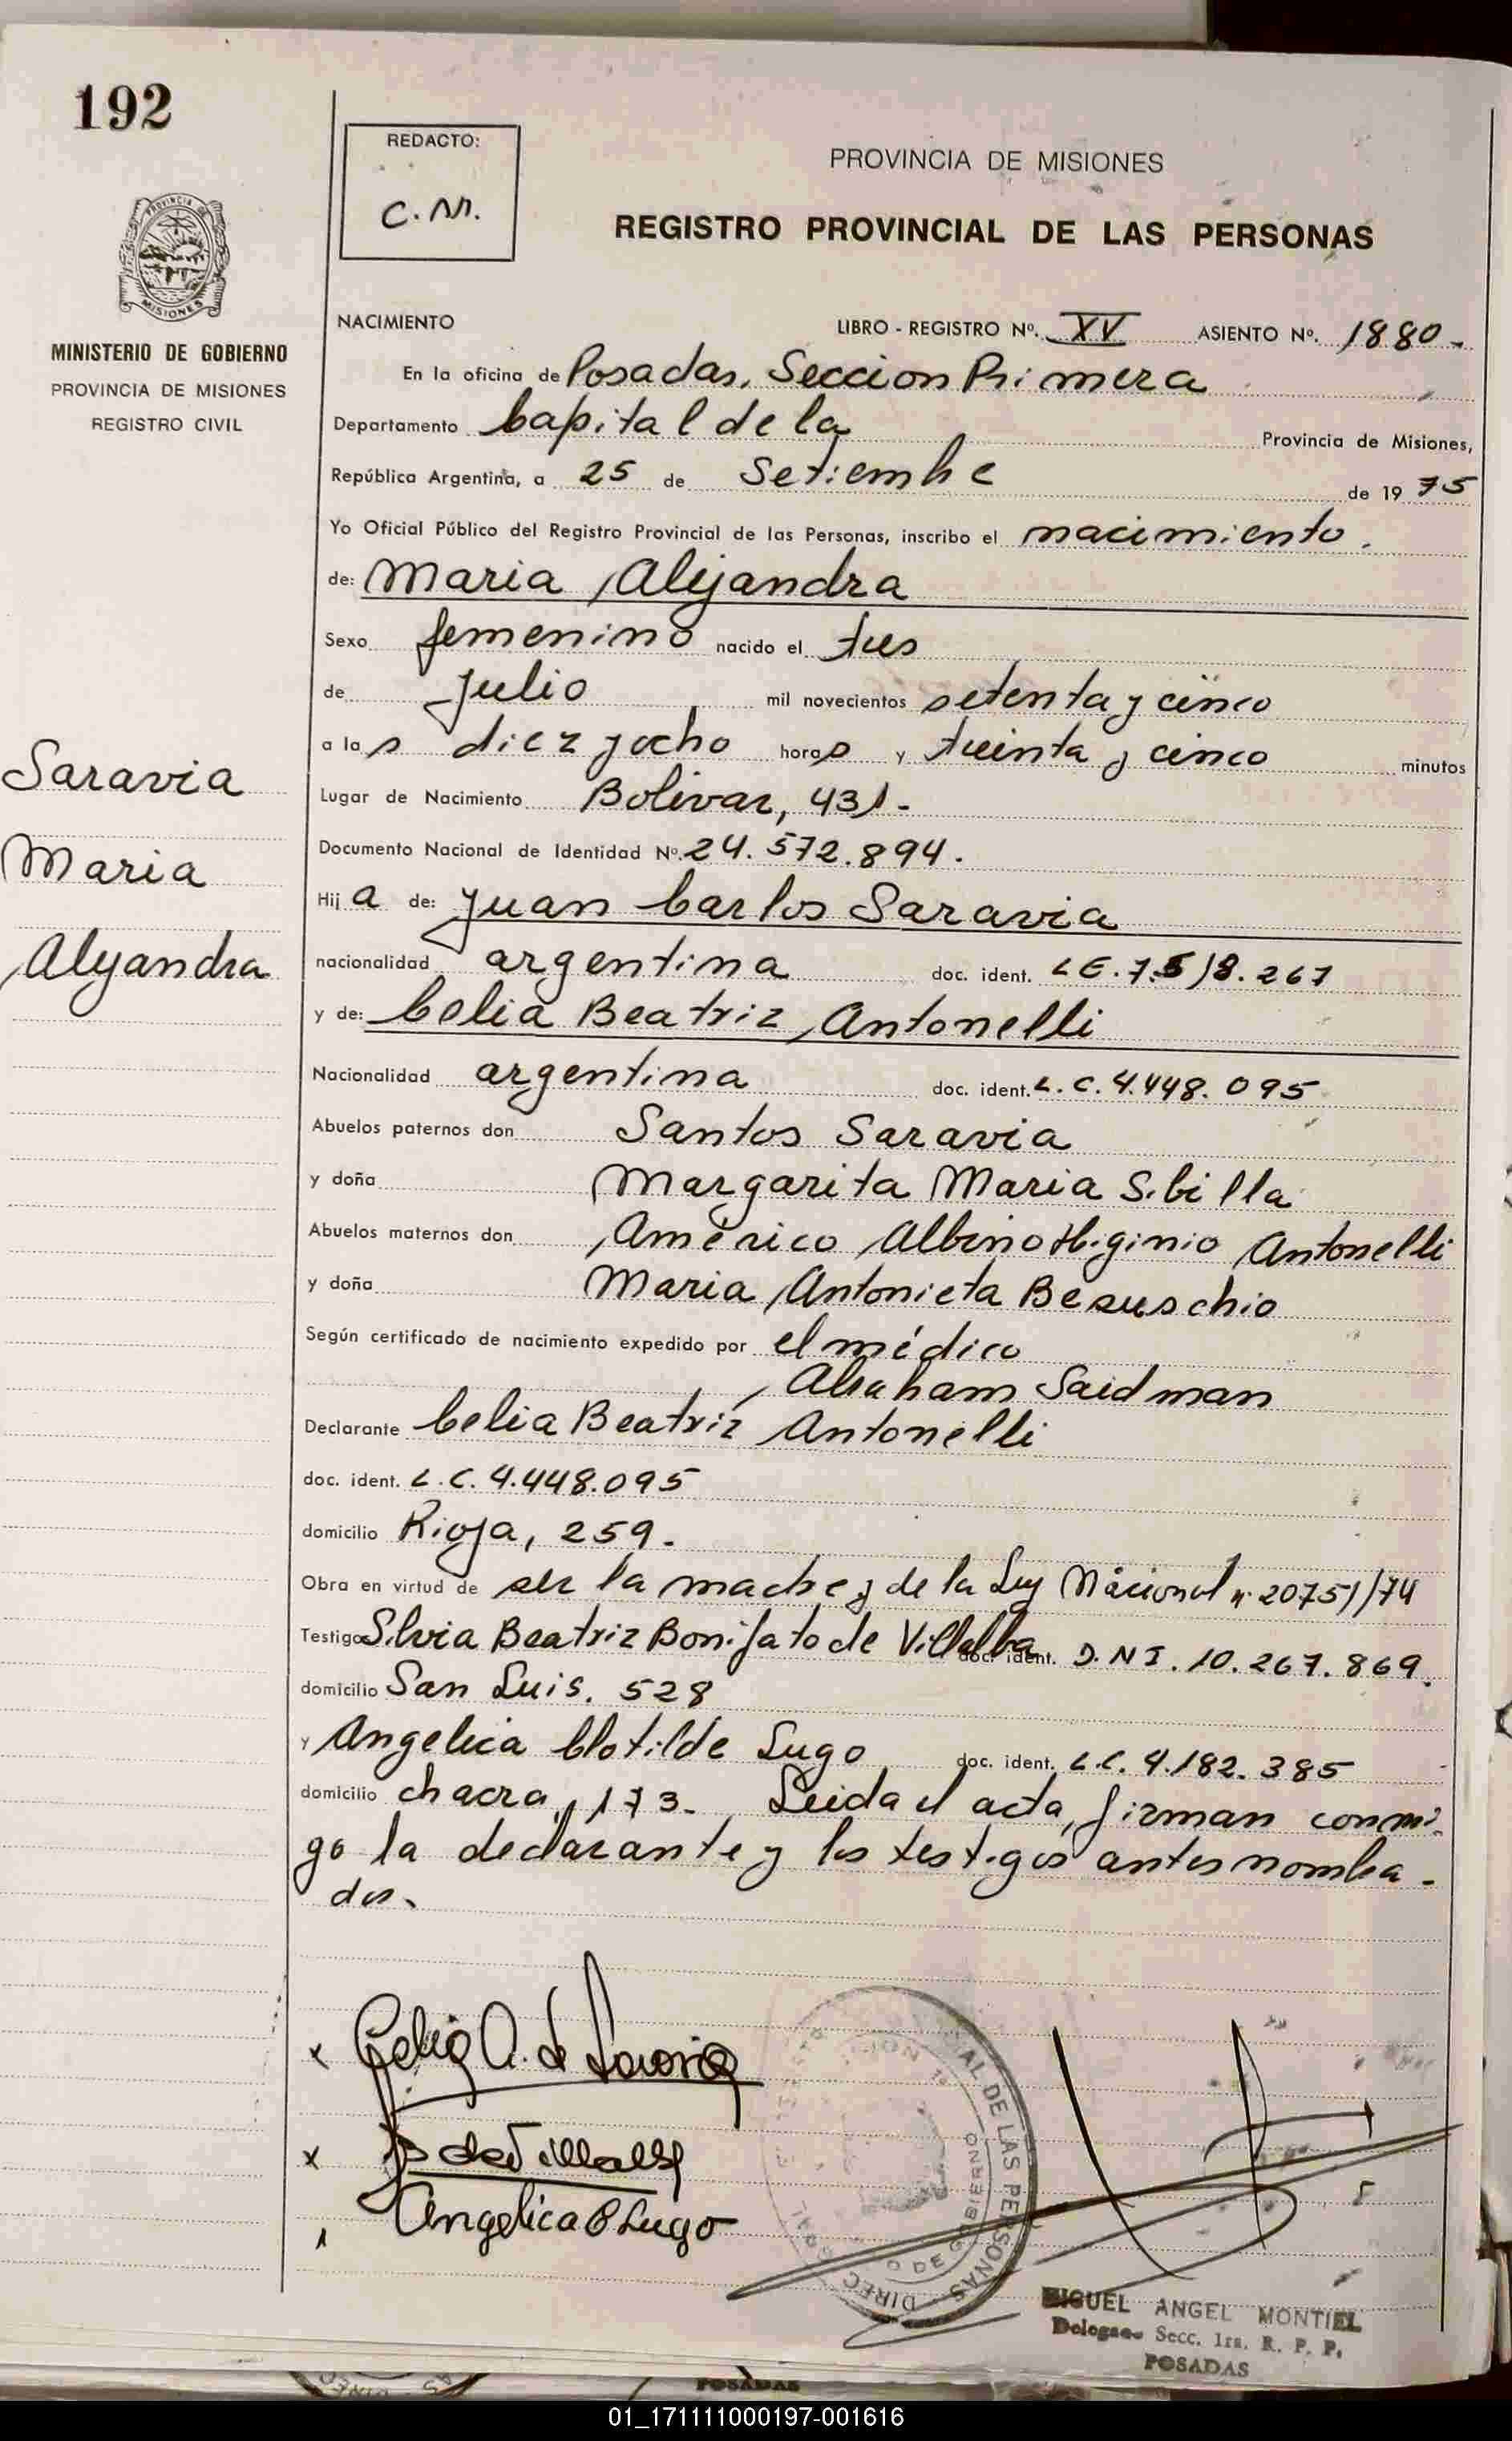 192
REDACTO:
C. M.
PROVINCIA DE MISIONES
REGISTRO PROVINCIAL DE LAS PERSONAS
PROVINCIA DE
MISIONES
MINISTERIO DE GOBIERNO
PROVINCIA DE MISIONES
REGISTRO CIVIL
Saravia
Maria
Alejandra
NACIMIENTO LIBRO - REGISTRO Nº. XV ASIENTO Nº. 1880.-
En la oficina de Posadas, Seccion Primera
Departamento Capital de la Provincia de Misiones,
República Argentina, a 25 de Setiembre de 19 75
Yo Oficial Público del Registro Provincial de las Personas, inscribo el nacimiento.
de: Maria Alejandra
Sexo femenino nacido el tres
de Julio mil novecientos setenta y cinco
a las diez y ocho horas y treinta y cinco minutos
Lugar de Nacimiento Bolivar, 431.-
Documento Nacional de Identidad Nº. 24.572.894.
Hij a de: Juan Carlos Saravia
nacionalidad argentina doc. ident. L E. 7.518.267
y de: Celia Beatriz Antonelli
Nacionalidad argentina doc. ident. L. C. 4.448.095
Abuelos paternos don Santos Saravia
y doña Margarita Maria Sibilla
Abuelos maternos don Américo Albino Higinio Antonelli
y doña Maria Antonieta Besuschio
Según certificado de nacimiento expedido por el médico
Abraham Saidman
Declarante Celia Beatriz Antonelli
doc. ident. L. C. 4.448.095
domicilio Rioja, 259.-
Obra en virtud de ser la madre y de la Ley Nacional nº 20751/74
Testigos Silvia Beatriz Bonifato de Villalba doc. ident. D. N I. 10.267.869.
domicilio San Luis, 528
y Angelica Clotilde Lugo doc. ident. L.C. 4.182.385
domicilio chacra, 173.- Leida el acta, firman conmi-
go la declarante y los testigos antes nombra-
dos.
x Celia A. de Saravia
x B de Villalba
Angelica C Lugo
AL DE LAS PERSONAS - DIREC
O DE GOBIERNO
MIGUEL ANGEL MONTIEL
Delegado Secc. 1ra. R. P. P.
POSADAS
POSADAS
01_171111000197-001616